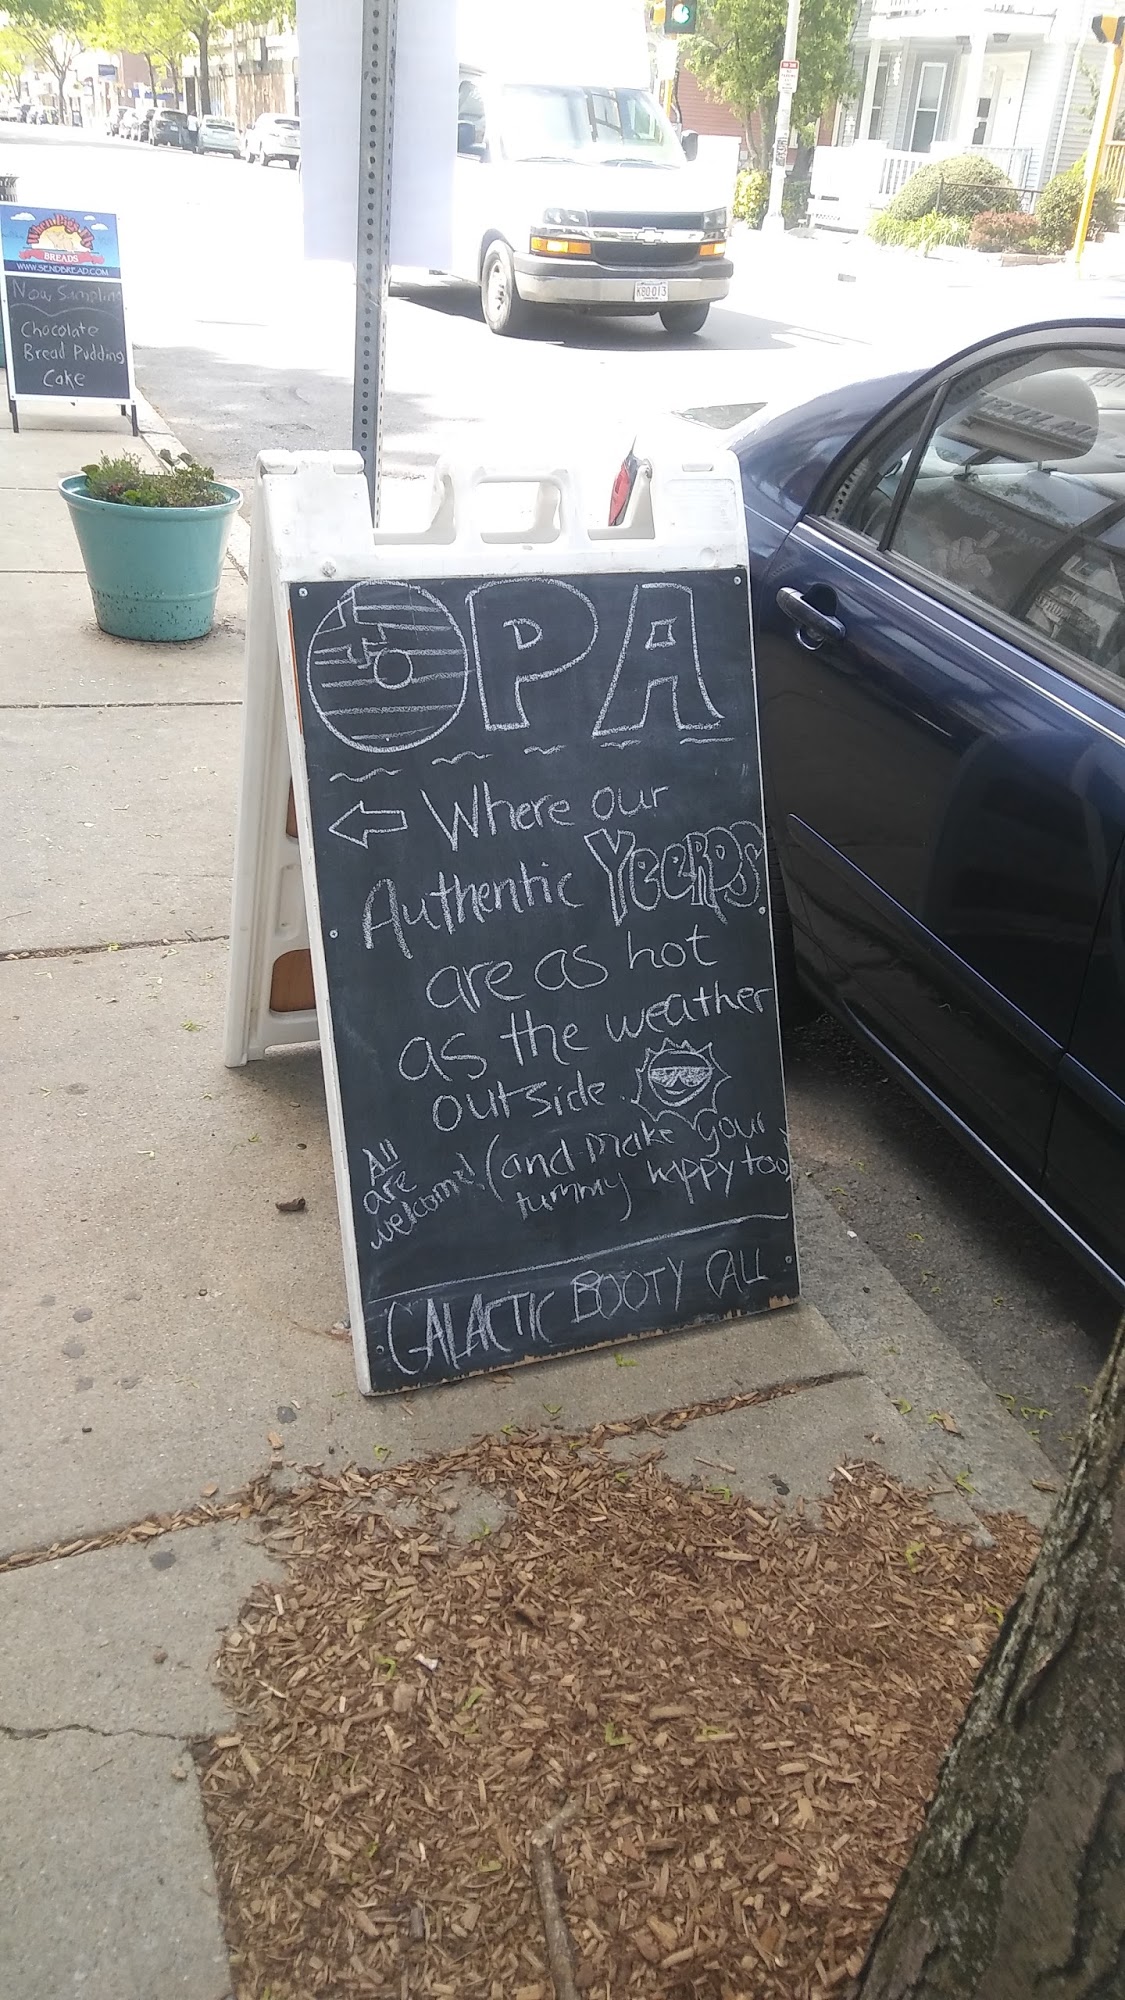 When Pigs Fly
BREADS
WWW.SENDBREAD.COM
Now Sampling
Chocolate
Bread Pudding
Cake
KBO 013
OPA
Where our
Authentic YeeRPS
are as hot
as the weather
outside.
All
are
welcome!
(and make your
tummy happy too)
GALACTIC BOOTY CALL